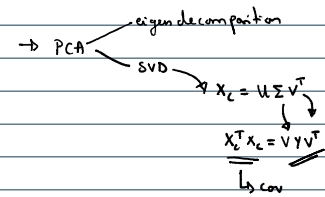 → PCA
eigendecomposition
SVD
X_c = U Σ V^T
X_c^T X_c = V Y V^T
↳ cov